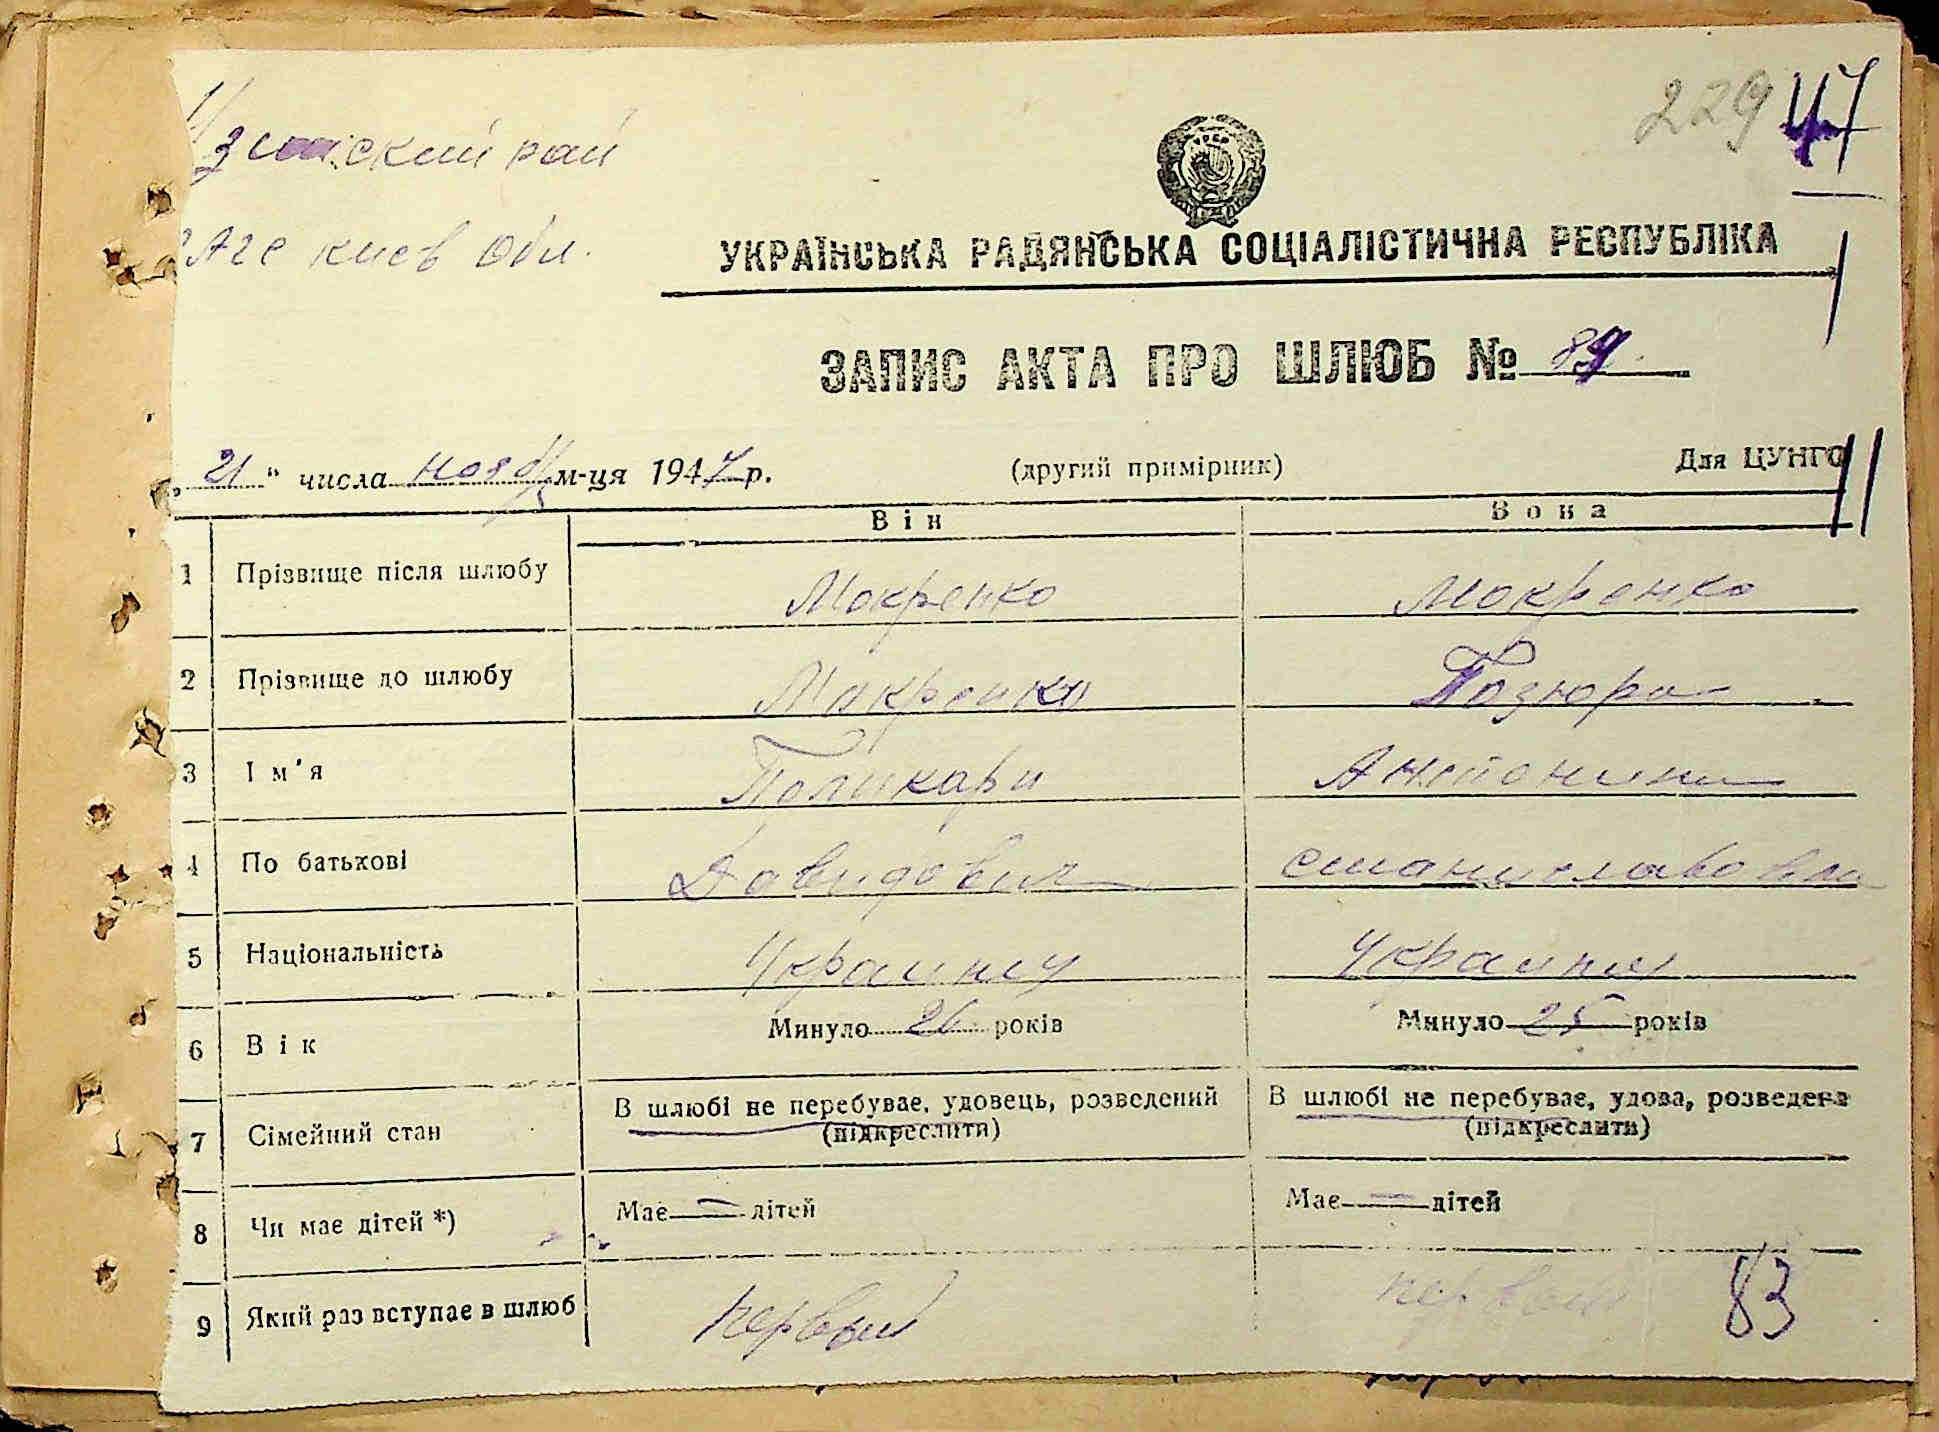 229 47
ский рай
киев обл.
УРСР
УКРАЇНСЬКА РАДЯНСЬКА СОЦІАЛІСТИЧНА РЕСПУБЛІКА
ЗАПИС АКТА ПРО ШЛЮБ № 89
„21“ числа нояб м-ця 1947 р. (другий примірник) Для ЦУНГО
Він Вона
1 Прізвище після шлюбу Мокренко Мокренко
2 Прізвище до шлюбу Мокренко Позюра
3 Ім'я Поликарп Антонина
4 По батькові Давидович Станиславовна
5 Національність Украинц Украинка
6 Вік Минуло 26 років Минуло 25 років
7 Сімейний стан В шлюбі не перебуває, удовець, розведений В шлюбі не перебуває, удова, розведена
(підкреслити) (підкреслити)
8 Чи має дітей *) Має — дітей Має — дітей
9 Який раз вступає в шлюб первый первый
83